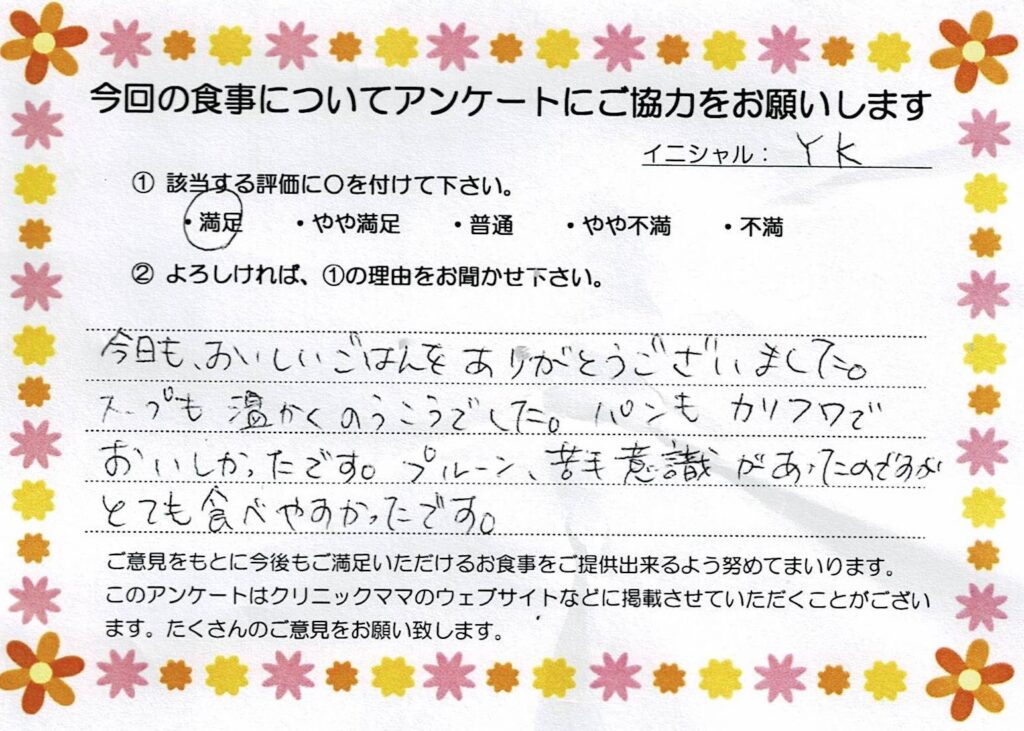 今回の食事についてアンケートにご協力をお願いします
イニシャル： YK
① 該当する評価に〇を付けて下さい。
・満足 ・やや満足 ・普通 ・やや不満 ・不満
② よろしければ、①の理由をお聞かせ下さい。
今日も、おいしいごはんをありがとうございました。
スープも温かくのうこうでした。パンもカリフワで
おいしかったです。プルーン、苦手意識があったのですが
とても食べやすかったです。
ご意見をもとに今後もご満足いただけるお食事をご提供出来るよう努めてまいります。
このアンケートはクリニックママのウェブサイトなどに掲載させていただくことがござい
ます。たくさんのご意見をお願い致します。